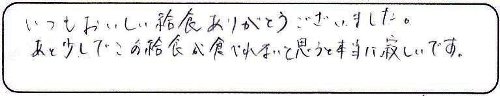 いつもおいしい給食ありがとうございました。
あと少しでこの給食が食べれないと思うと本当に寂しいです。